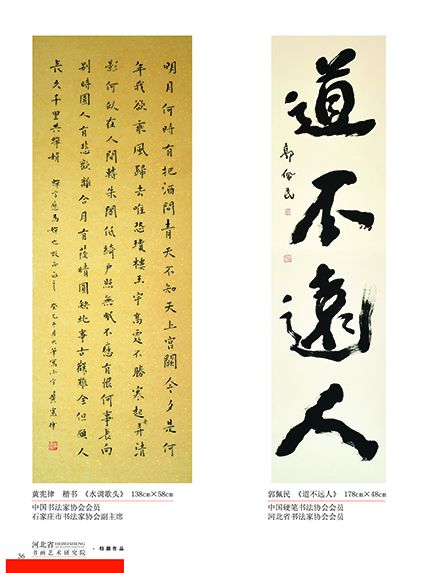 明月何時有把酒問青天不知天上宮闕今夕是何
年我欲乘風歸去唯恐瓊樓玉宇高處不勝寒起舞弄清
影何似在人間轉朱閣低綺戶照無眠不應有恨何事長向
別時圓人有悲歡離合月有陰晴圓缺此事古難全但願人
長久千里共嬋娟
黃憲律
道不遠人
郭佩民
黄宪律 楷书 《水调歌头》 138cm×58cm
中国书法家协会会员
石家庄市书法家协会副主席
郭佩民 《道不远人》 178cm×48cm
中国硬笔书法协会会员
河北省书法家协会会员
36
河北省 HEBEISHENG
书画艺术研究院 · 特邀作品